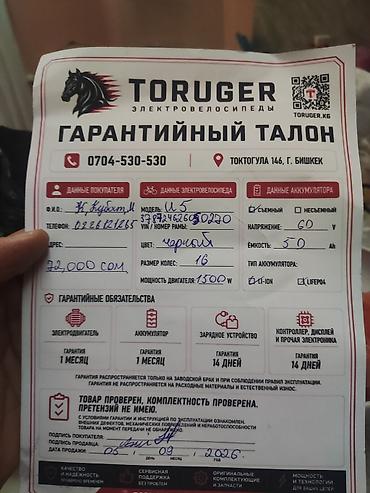 TORUGER
ЭЛЕКТРОВЕЛОСИПЕДЫ
TORUGER.KG
ГАРАНТИЙНЫЙ ТАЛОН
0704-530-530
ТОКТОГУЛА 146, Г. БИШКЕК
ДАННЫЕ ПОКУПАТЕЛЯ
Ф.И.О.:
ТЕЛЕФОН:
АДРЕС:
72,000 СОМ
ДАННЫЕ ЭЛЕКТРОВЕЛОСИПЕДА
МОДЕЛЬ:
VIN / НОМЕР РАМЫ:
ЦВЕТ: черный
РАЗМЕР КОЛЕС: 16
МОЩНОСТЬ ДВИГАТЕЛЯ: 1500 W
ДАННЫЕ АККУМУЛЯТОРА
СЪЕМНЫЙ НЕСЪЕМНЫЙ
НАПРЯЖЕНИЕ: 60 V
ЁМКОСТЬ: 50 Ah
ТИП АККУМУЛЯТОРА:
LI-ION LIFEPO4
ГАРАНТИЙНЫЕ ОБЯЗАТЕЛЬСТВА
ЭЛЕКТРОДВИГАТЕЛЬ
ГАРАНТИЯ
1 МЕСЯЦ
АККУМУЛЯТОР
ГАРАНТИЯ
1 МЕСЯЦ
ЗАРЯДНОЕ УСТРОЙСТВО
ГАРАНТИЯ
14 ДНЕЙ
КОНТРОЛЛЕР, ДИСПЛЕЙ
И ПРОЧАЯ ЭЛЕКТРОНИКА
ГАРАНТИЯ
14 ДНЕЙ
ГАРАНТИЯ РАСПРОСТРАНЯЕТСЯ ТОЛЬКО НА ЗАВОДСКОЙ БРАК И ПРИ СОБЛЮДЕНИИ ПРАВИЛ ЭКСПЛУАТАЦИИ.
ГАРАНТИЯ НЕ РАСПРОСТРАНЯЕТСЯ НА РАСХОДНЫЕ МАТЕРИАЛЫ И ЕСТЕСТВЕННЫЙ ИЗНОС.
ТОВАР ПРОВЕРЕН, КОМПЛЕКТНОСТЬ ПРОВЕРЕНА.
ПРЕТЕНЗИЙ НЕ ИМЕЮ.
С УСЛОВИЯМИ ГАРАНТИИ И ИНСТРУКЦИЕЙ ПО ЭКСПЛУАТАЦИИ ОЗНАКОМЛЕН.
ВНЕШНИХ ДЕФЕКТОВ, МЕХАНИЧЕСКИХ ПОВРЕЖДЕНИЙ И НЕРАБОТОСПОСОБНОСТИ
ТОВАРА НА МОМЕНТ ПЕРЕДАЧИ НЕ
ПОДПИСЬ ПОКУПАТЕЛЯ
ПОДПИСЬ ПРОДАВЦА
ДАТА ПРОДАЖИ 05 / 09 / 2026
ДЕНЬ МЕСЯЦ ГОД
КАЧЕСТВО
И НАДЕЖНОСТЬ
ПРОВЕРЕНО ВРЕМЕНЕМ
СЕРВИСНАЯ
ПОДДЕРЖКА
БЕЗ ПРОБЛЕМ
ОРИГИНАЛЬНЫЕ
КОМПЛЕКТУЮЩИЕ
И ЗАПЧАСТИ
МОЩНОСТЬ
И ТЕХНОЛОГИИ